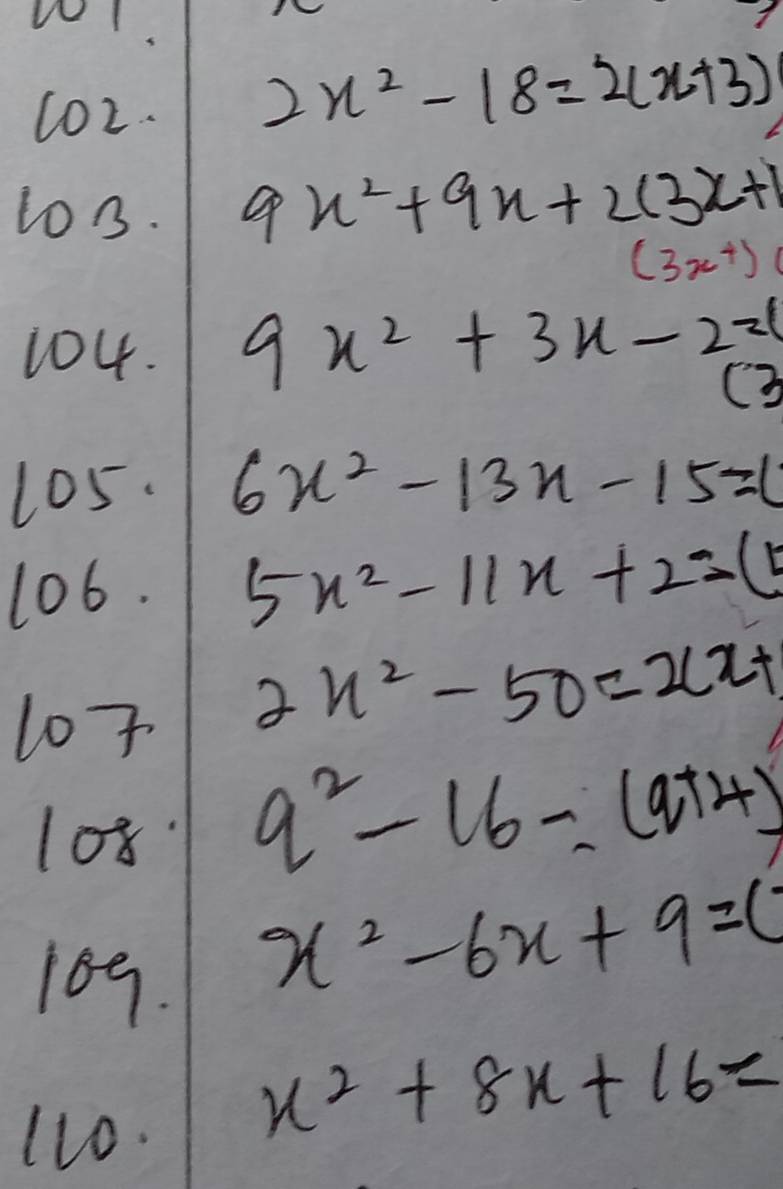 102. 2x² - 18 = 2(x+3)
103. 9x² + 9x + 2(3x+1
(3x+) (
104. 9x² + 3x - 2 = (
(3
105. 6x² - 13x - 15 = (
106. 5x² - 11x + 2 = (5
107 2x² - 50 = 2(x+
108. a² - 16 = (a+4)
109. x² - 6x + 9 = (
110. x² + 8x + 16 =